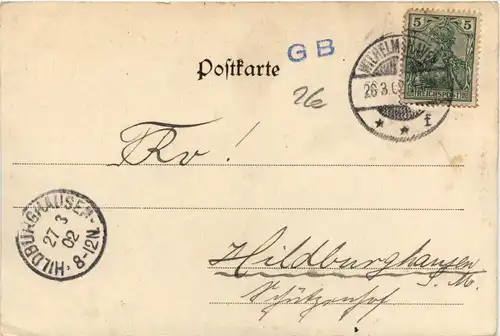 GB
Postkarte
5
REICHSPOST
WILHELMSHAVEN
26.3.02
* * f
26
Frv!
HILDBURGHAUSEN
27
3
02
8-12N.
Hildburghausen
S. M.
Schützenhof